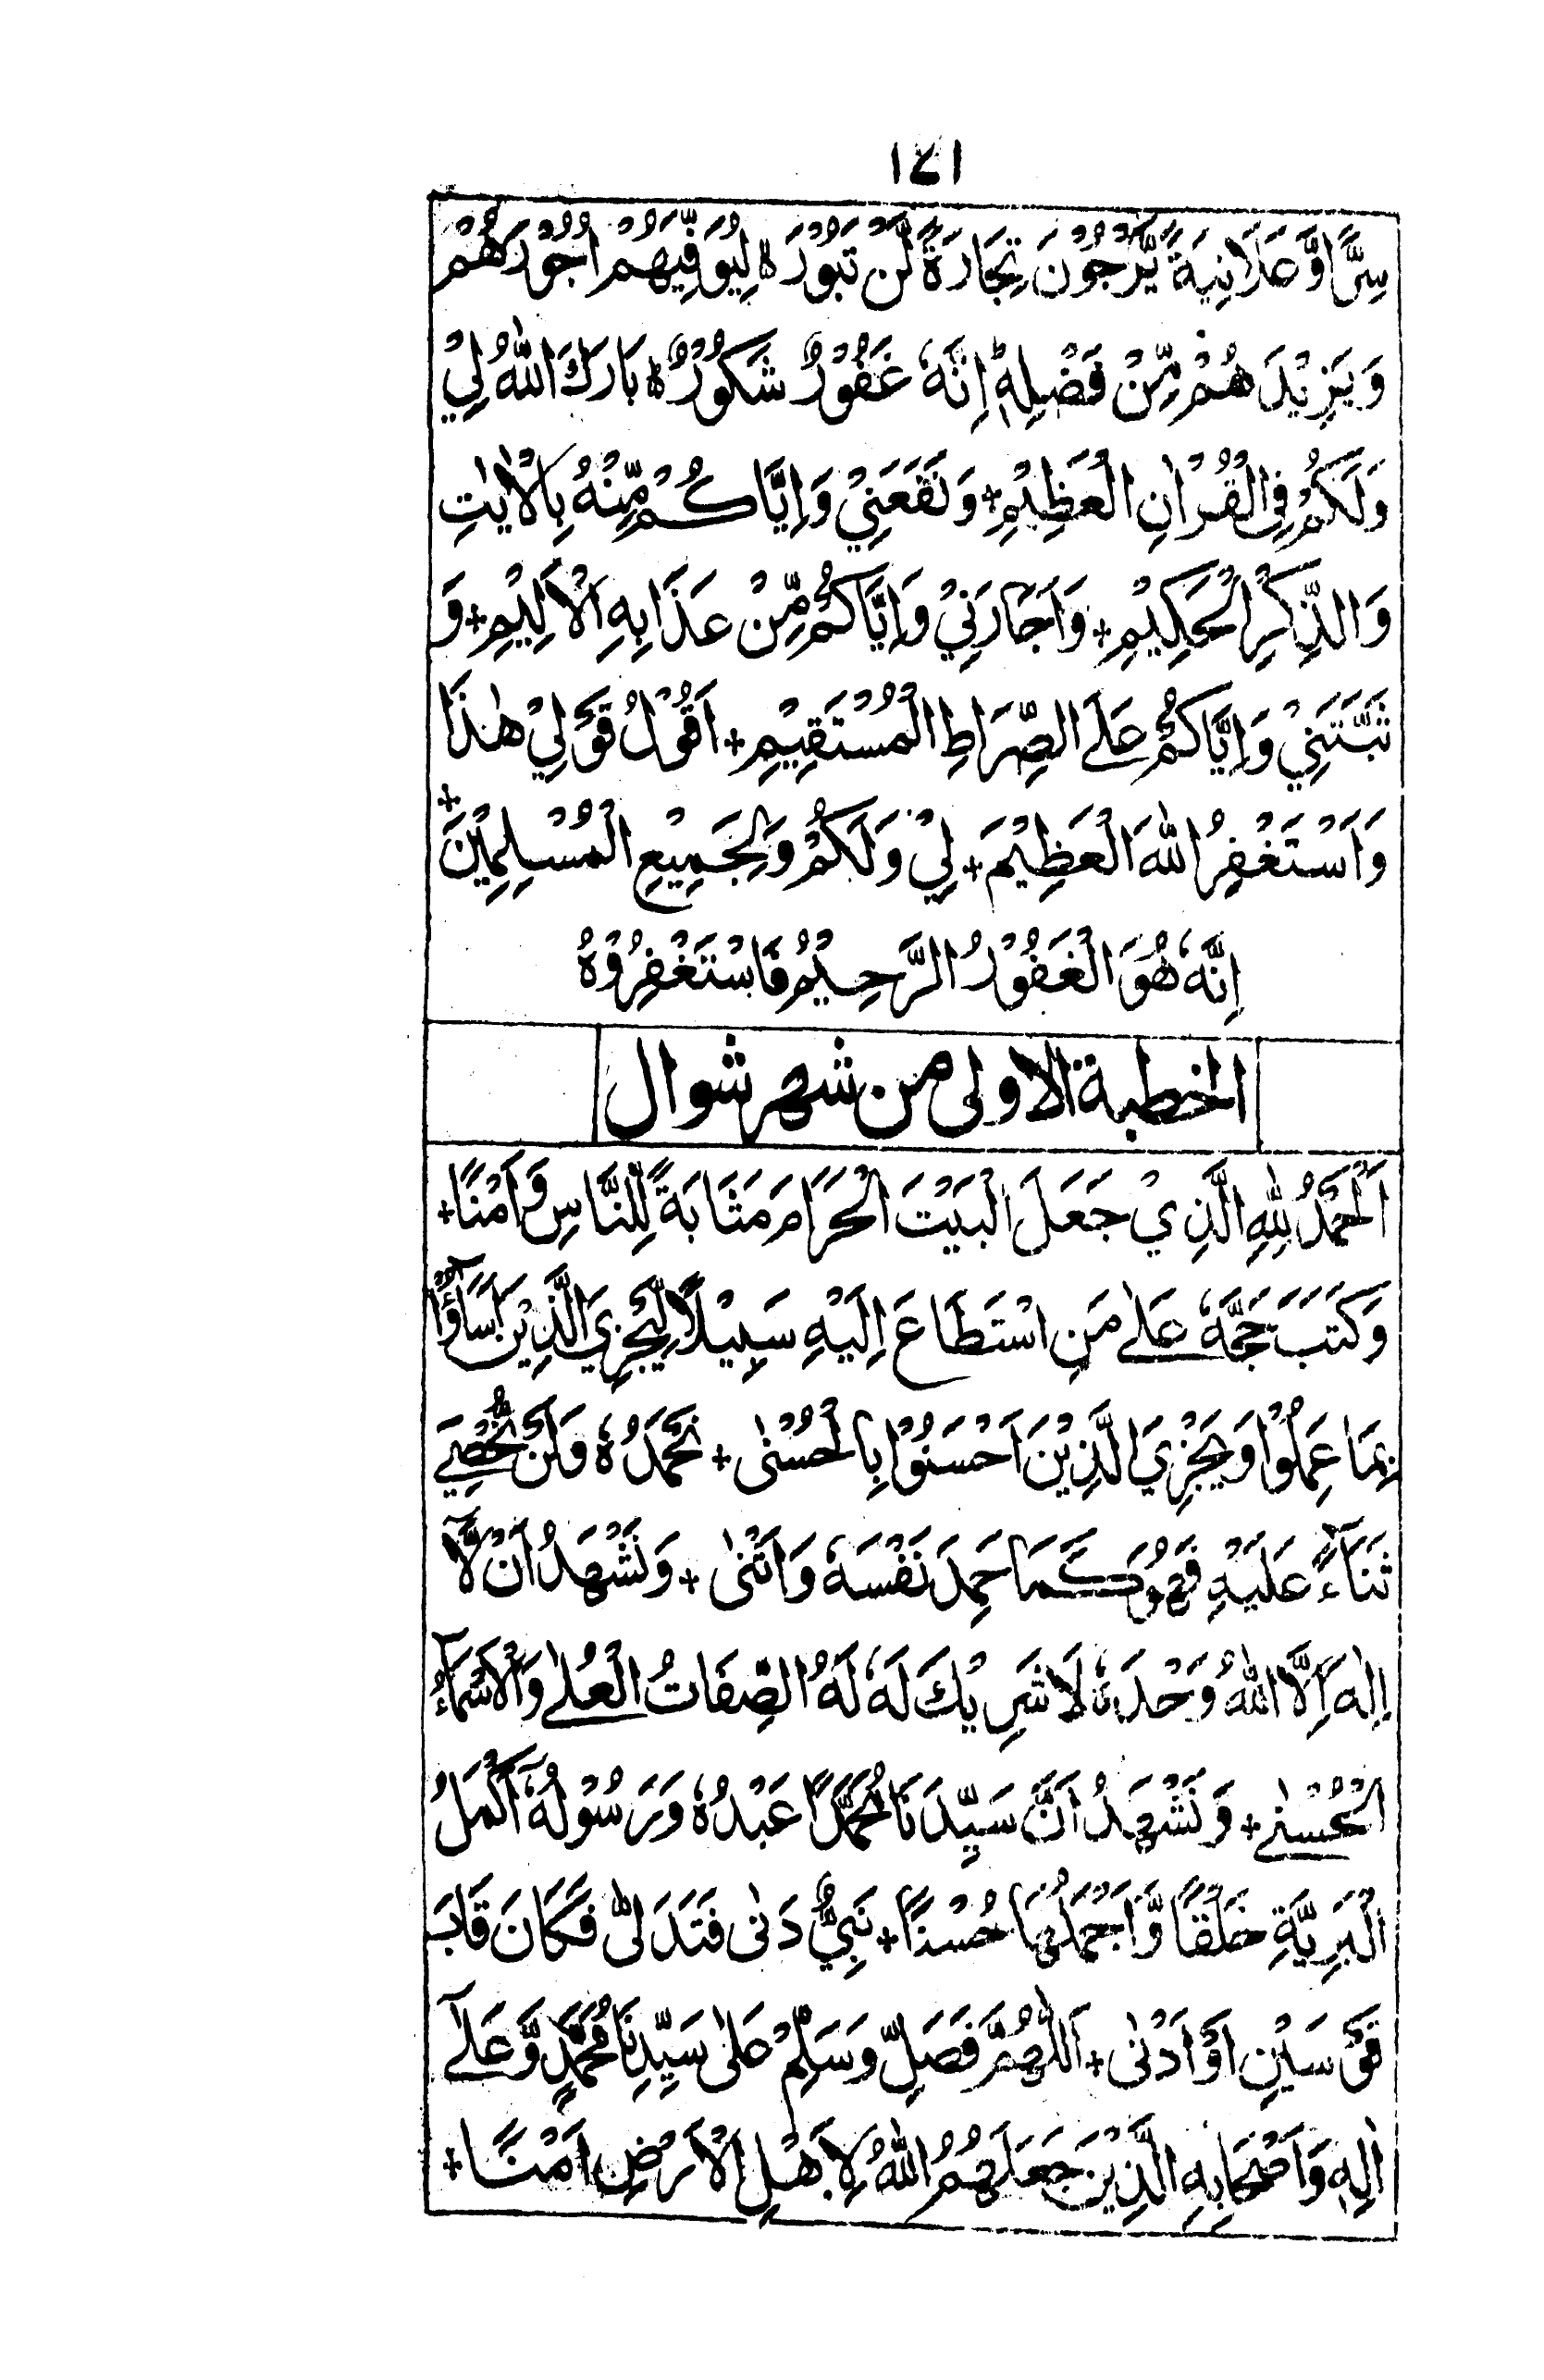 ١٤١
سِرًّا وَّعَلَانِيَةً يَّرْجُوْنَ تِجَارَةً لَّنْ تَبُوْرَ ۙ لِيُوَفِّيَهُمْ اُجُوْرَهُمْ
وَيَزِيْدَهُمْ مِّنْ فَضْلِهٖ ؕ اِنَّهٗ غَفُوْرٌ شَكُوْرٌ ۙ بَارَكَ اللّٰهُ لِيْ
وَلَكُمْ فِى الْقُرْاٰنِ الْعَظِيْمِ + وَنَفَعَنِيْ وَاِيَّاكُمْ مِّنْهُ بِالْاٰيٰتِ
وَالذِّكْرِ الْحَكِيْمِ + وَاَجَارَنِيْ وَاِيَّاكُمْ مِّنْ عَذَابِهِ الْاَلِيْمِ + وَ
ثَبَّتَنِيْ وَاِيَّاكُمْ عَلَے الصِّرَاطِ الْمُسْتَقِيْمِ + اَقُوْلُ قَوْلِيْ هٰذَا
وَاَسْتَغْفِرُ اللّٰهَ الْعَظِيْمَ + لِيْ وَلَكُمْ وَلِجَمِيْعِ الْمُسْلِمِيْنَ +
اِنَّهٗ هُوَ الْغَفُوْرُ الرَّحِيْمُ فَاسْتَغْفِرُوْهُ
الخطبة الاولى من شهر شوال
اَلْحَمْدُ لِلّٰهِ الَّذِيْ جَعَلَ الْبَيْتَ الْحَرَامَ مَثَابَةً لِّلنَّاسِ وَاَمْنًا +
وَكَتَبَ حَجَّهٗ عَلٰے مَنِ اسْتَطَاعَ اِلَيْهِ سَبِيْلًا لِّيَجْزِيَ الَّذِيْنَ اَسَآؤُا
بِمَا عَمِلُوْا وَيَجْزِيَ الَّذِيْنَ اَحْسَنُوْا بِالْحُسْنٰى + نَحْمَدُهٗ وَلَنْ نُّحْصِيَ
ثَنَآءً عَلَيْهِ فَهُوَ كَمَا حَمِدَ نَفْسَهٗ وَاَثْنٰى + وَنَشْهَدُ اَنْ لَّآ
اِلٰهَ اِلَّا اللّٰهُ وَحْدَهٗ لَا شَرِيْكَ لَهٗ لَهُ الصِّفَاتُ الْعُلٰے وَالْاَسْمَآءُ
الْحُسْنٰے + وَنَشْهَدُ اَنَّ سَيِّدَنَا مُحَمَّدًا عَبْدُهٗ وَرَسُوْلُهٗٓ اَكْمَلُ
الْبَرِيَّةِ خَلْقًا وَّاَجْمَلُهَا حُسْنًا + نَبِيٌّ دَنٰى فَتَدَلّٰى فَكَانَ قَابَ
قَوْسَيْنِ اَوْ اَدْنٰى + اَللّٰهُمَّ فَصَلِّ وَسَلِّمْ عَلٰى سَيِّدِنَا مُحَمَّدٍ وَّعَلٰٓے
اٰلِهٖ وَاَصْحَابِهِ الَّذِيْنَ جَعَلَهُمُ اللّٰهُ لِاَهْلِ الْاَرْضِ اَمْنًا +